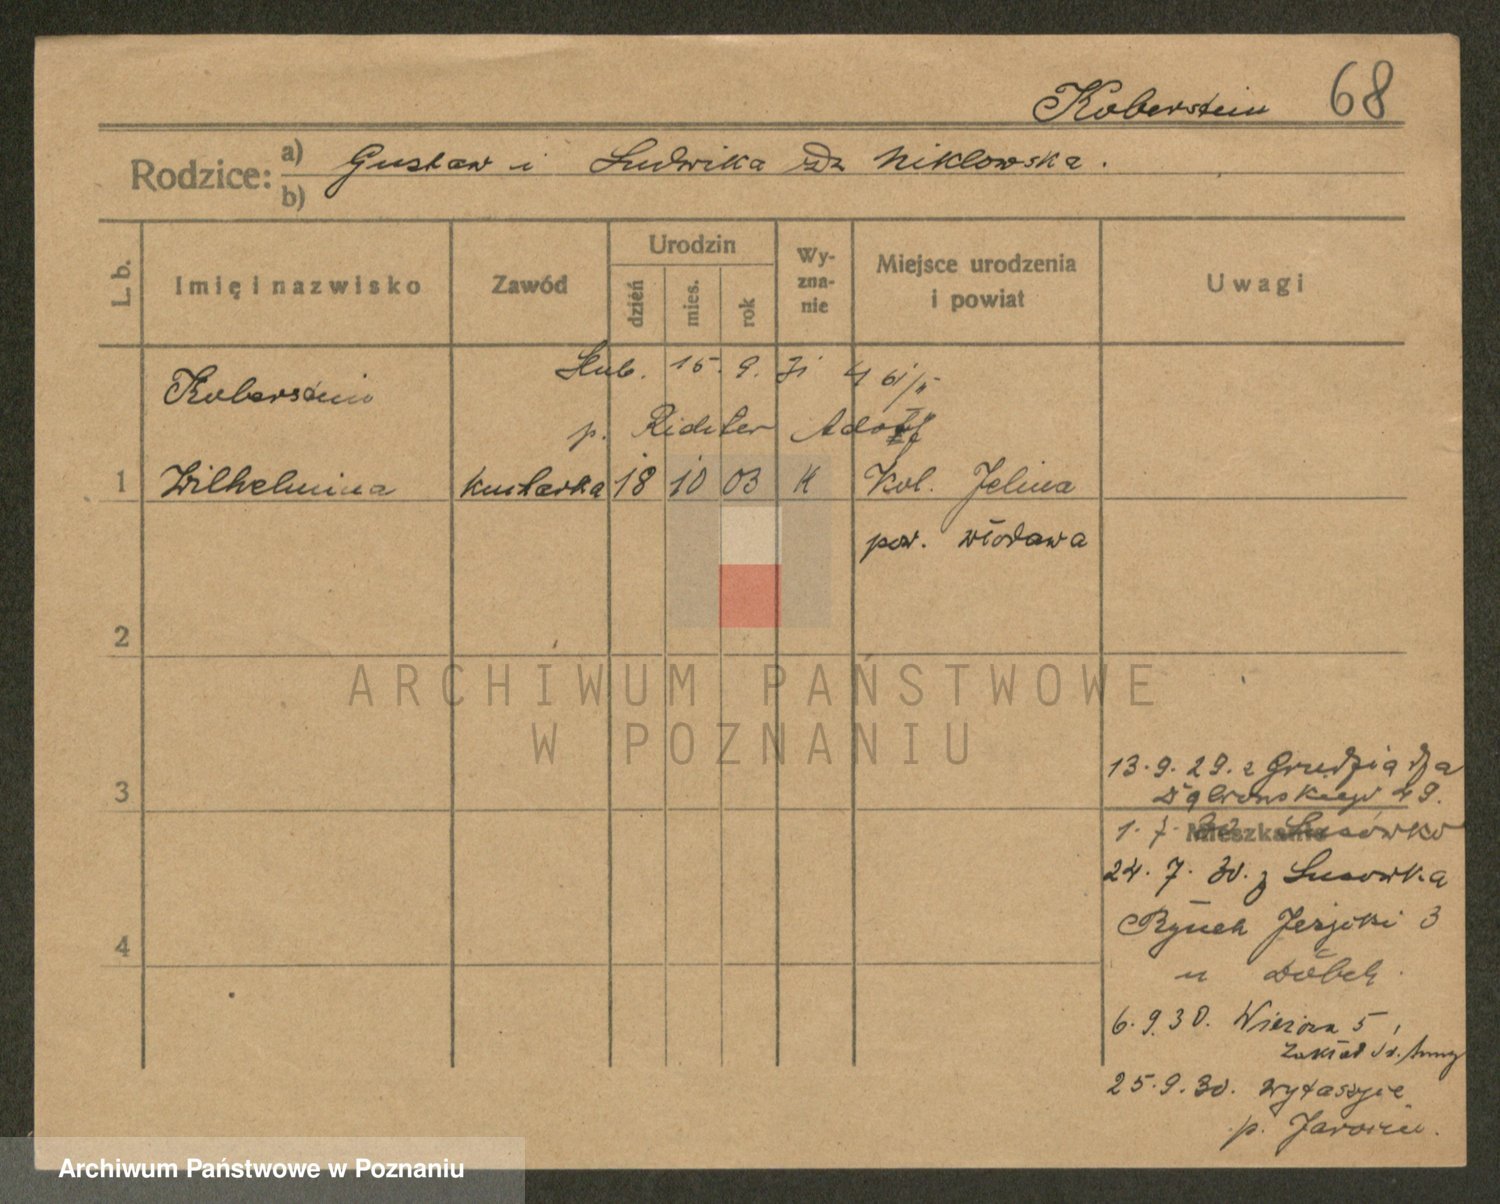 Koberstein 68
Rodzice: a) b) Gustaw i Ludwika Niklowska.
L. b. Imię i nazwisko Zawód Urodzin dzień mies. rok Wyznanie Miejsce urodzenia i powiat Uwagi
Koberstein Ślub. 15. 9. 31
p. Richter Adolf
1 Wilhelmina kucharka 18 10 03 K Kol. Jelina
pow. Włodawa
2
3
4
13.9.29. z Grudziądza
Dąbrowskiego 49.
Mieszkanie
1. 7. 30 Lusówko
24. 7. 30. z Lusówka
Rynek Jeżycki 3
u
6.9.30. 5
Zakład św. Anny
25.9.30. Wytaszyce
p. Jarocin.
ARCHIWUM PAŃSTWOWE
W POZNANIU
Archiwum Państwowe w Poznaniu